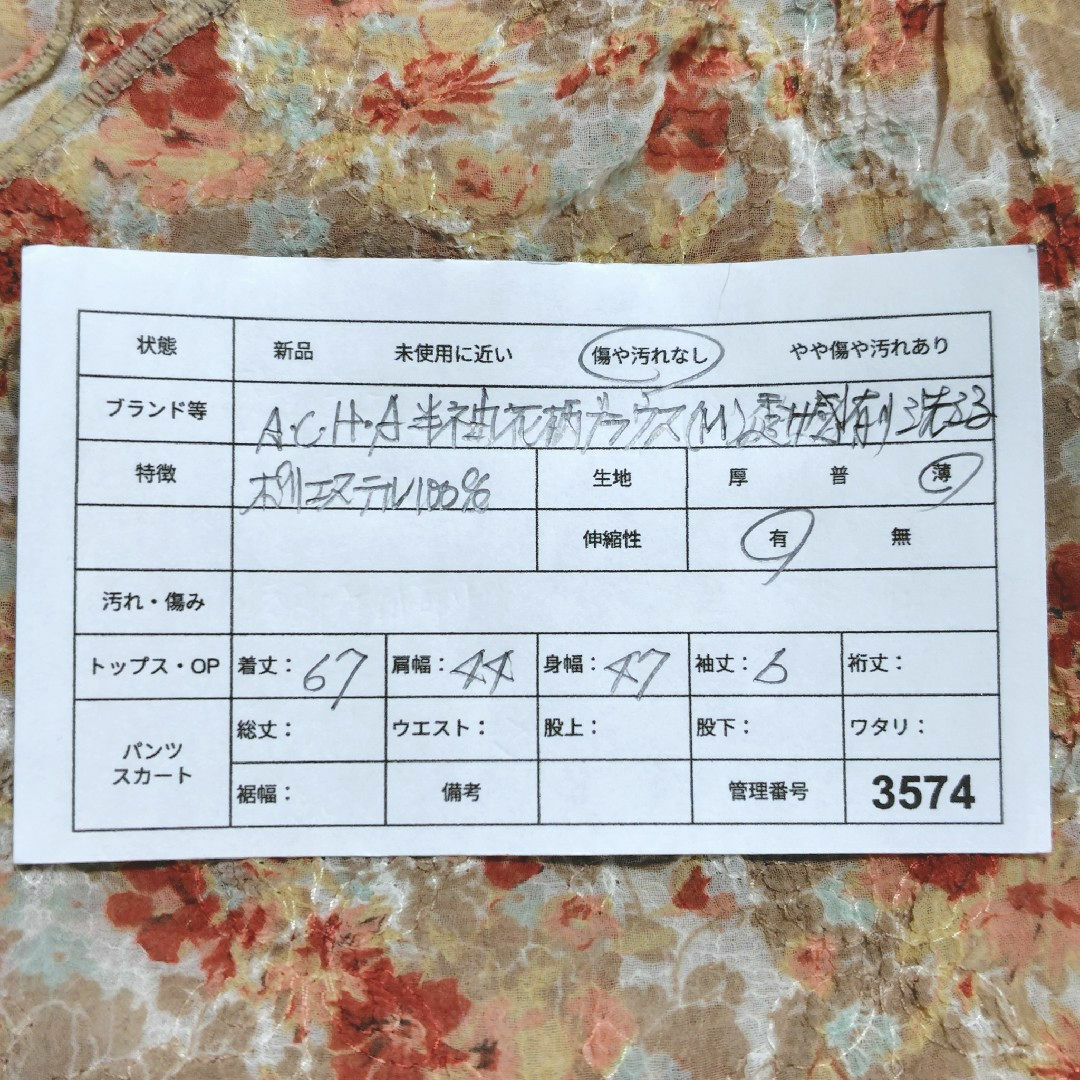 状態 新品 未使用に近い 傷や汚れなし やや傷や汚れあり
ブランド等 A・C・H・A 半袖花柄ブラウス(M)透け感有り洗える
特徴 ポリエステル100% 生地 厚 普 薄
伸縮性 有 無
汚れ・傷み
トップス・OP 着丈：67 肩幅：44 身幅：47 袖丈：6 裄丈：
パンツ スカート
総丈： ウエスト： 股上： 股下： ワタリ：
裾幅： 備考 管理番号 3574